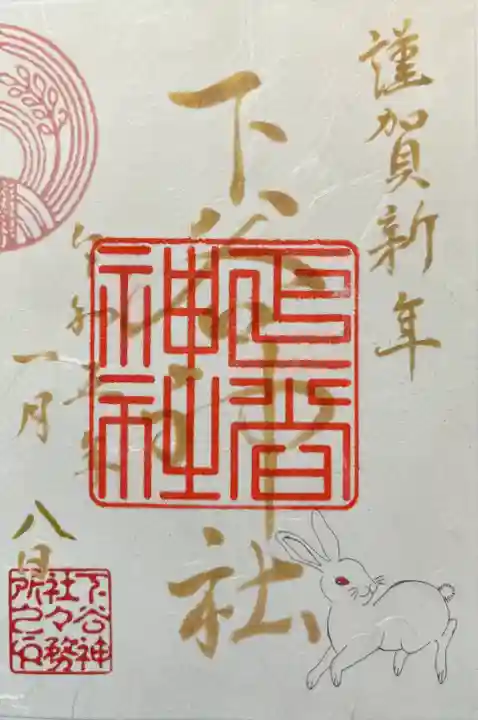 謹賀新年
下谷神社
令和五年
一月
八日
下谷
神社
下谷神
社々務
所之印